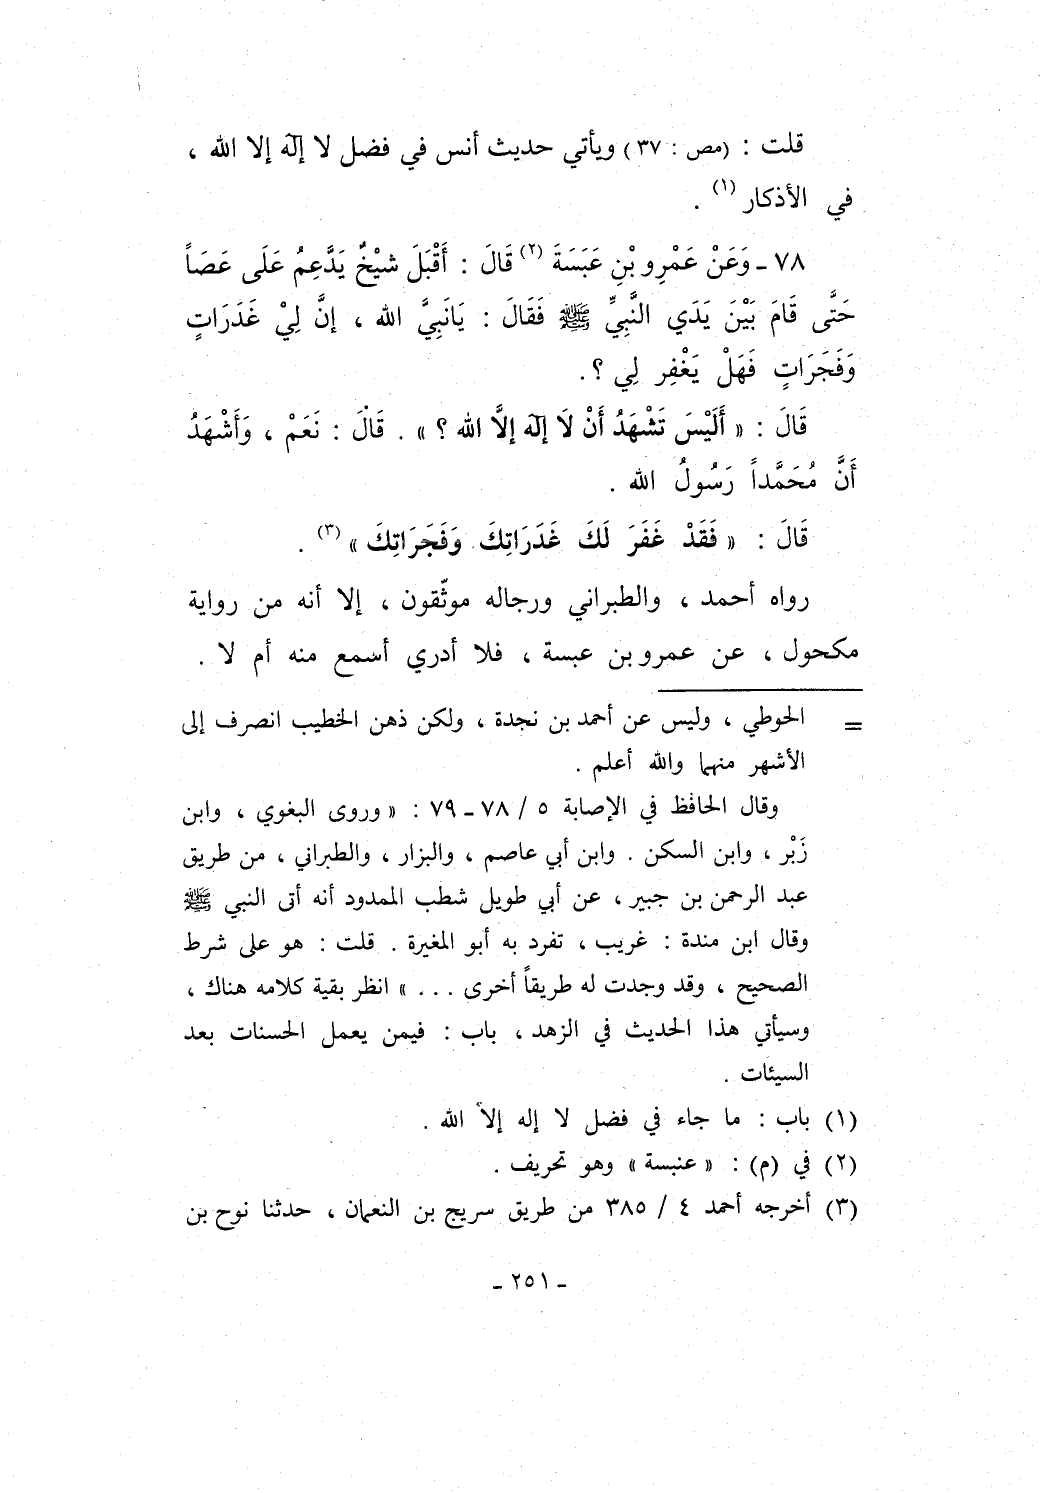 قلت : (مص : ٣٧) ويأتي حديث أنس في فضل لا إلٰه إلا الله ،
في الأذكار (١) .
٧٨ ـ وَعَنْ عَمْرِو بْنِ عَبَسَةَ (٢) قَالَ : أَقْبَلَ شَيْخٌ يَدَّعِمُ عَلَى عَصَاً
حَتَّى قَامَ بَيْنَ يَدَي النَّبِيِّ ﷺ فَقَالَ : يَانَبِيَّ الله ، إنَّ لِيْ غَدَرَاتٍ
وَفَجَرَاتٍ فَهَلْ يَغْفِر لِي ؟ .
قَالَ : « أَلَيْسَ تَشْهَدُ أَنْ لَا إلٰه إلَّا الله ؟ » . قَالَ : نَعَمْ ، وَأَشْهَدُ
أَنَّ مُحَمَّداً رَسُولُ الله .
قَالَ : « فَقَدْ غَفَرَ لَكَ غَدَرَاتِكَ وَفَجَرَاتِكَ » (٣) .
رواه أحمد ، والطبراني ورجاله موثّقون ، إلا أنه من رواية
مكحول ، عن عمرو بن عبسة ، فلا أدري أسمع منه أم لا .
= الحوطي ، وليس عن أحمد بن نجدة ، ولكن ذهن الخطيب انصرف إلى
الأشهر منهما والله أعلم .
وقال الحافظ في الإصابة ٥ / ٧٨ ـ ٧٩ : « وروى البغوي ، وابن
زَبْر ، وابن السكن . وابن أبي عاصم ، والبزار ، والطبراني ، من طريق
عبد الرحمن بن جبير ، عن أبي طويل شطب الممدود أنه أتى النبي ﷺ
وقال ابن مندة : غريب ، تفرد به أبو المغيرة . قلت : هو على شرط
الصحيح ، وقد وجدت له طريقاً أخرى . . . » انظر بقية كلامه هناك ،
وسيأتي هذا الحديث في الزهد ، باب : فيمن يعمل الحسنات بعد
السيئات .
(١) باب : ما جاء في فضل لا إله إلا الله .
(٢) في (م) : « عنبسة » وهو تحريف .
(٣) أخرجه أحمد ٤ / ٣٨٥ من طريق سريج بن النعمان ، حدثنا نوح بن
ـ ٢٥١ ـ